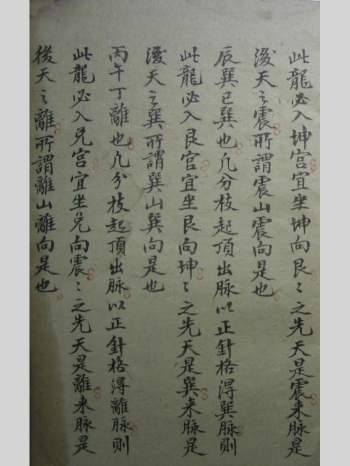 此龍必入坤宮宜坐坤向艮〻之先天是震来脉是
後天之震所謂震山震向是也
辰巽巳巽也凡分枝起頂出脉以正針格得巽脉則
此龍必入艮宮宜坐艮向坤〻之先天是巽来脉是
後天之巽所謂巽山巽向是也
丙午丁離也凡分枝起頂出脉以正針格得離脉則
此龍必入兌宮宜坐兌向震〻之先天是離来脉是
後天之離所謂離山離向是也